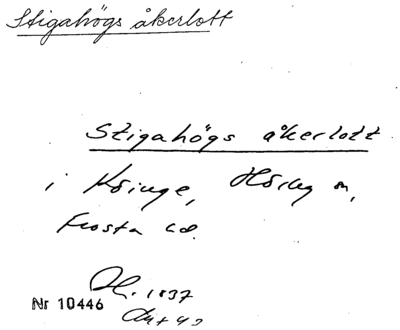 Stigahögs åkerlott
Stigahögs åkerlott
i Köinge, Hörby sn,
Frosta hd.
1837
Nr 10446